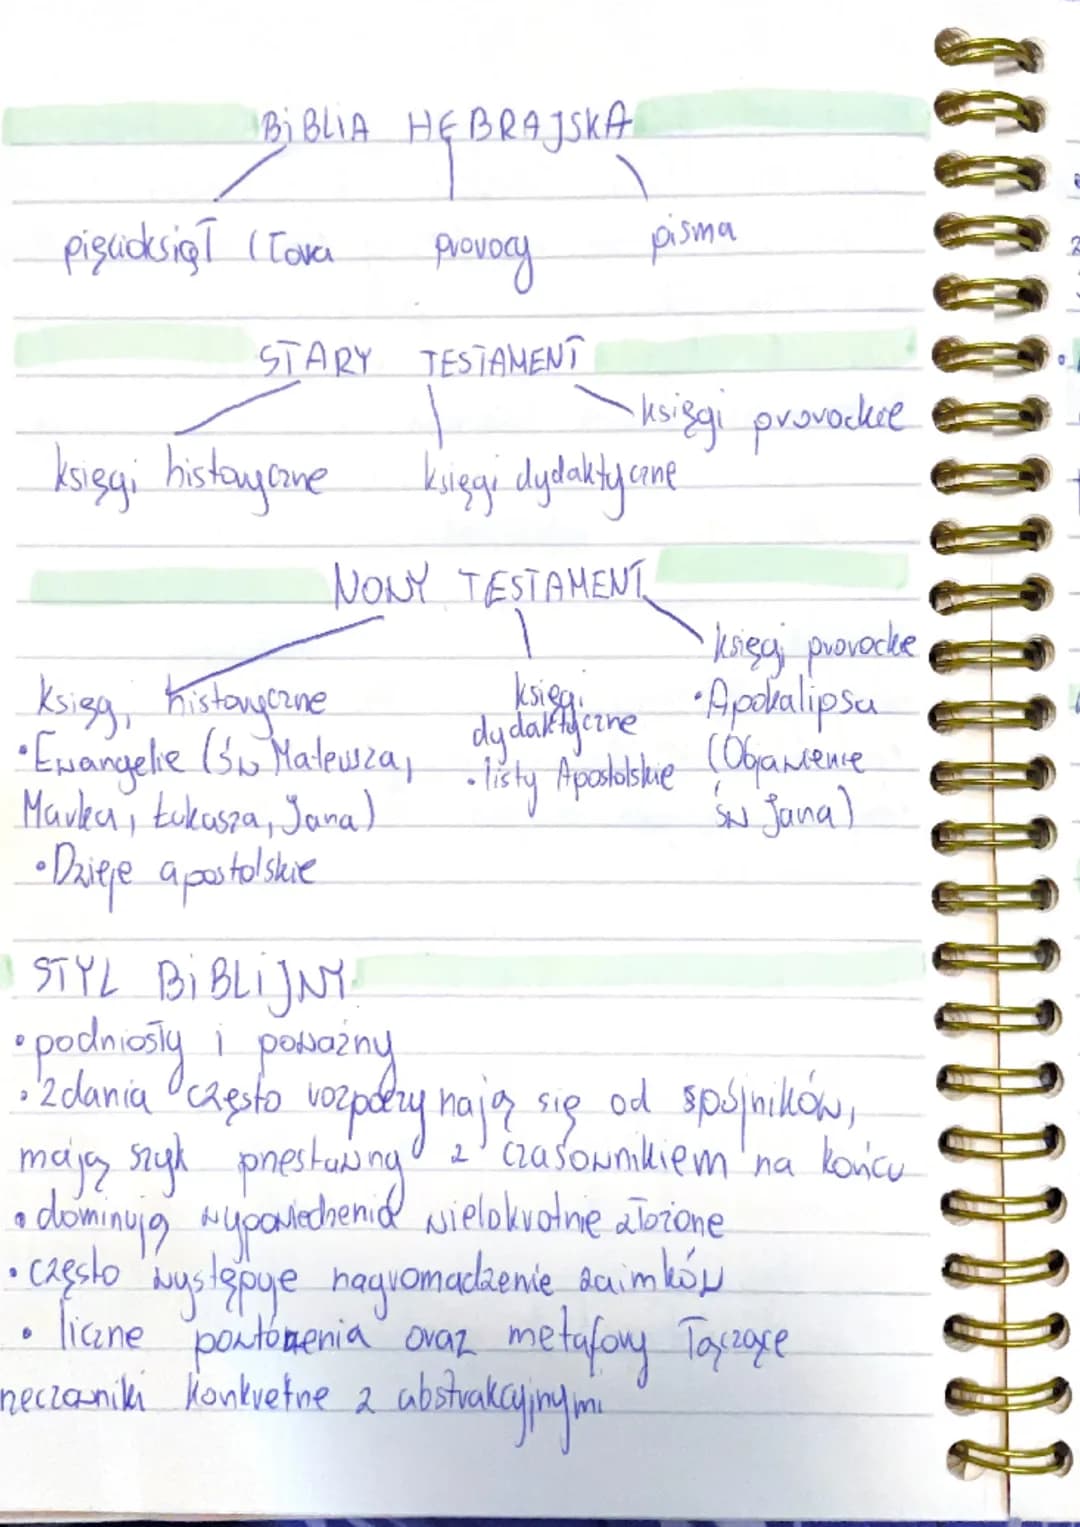 BiBLIA HEBRAJSKA
pięcioksiąg (Tora prorocy pisma
STARY TESTAMENT
księgi prorockie
księgi historyczne księgi dydaktyczne
NOWY TESTAMENT
księgi prorockie
księgi historyczne księgi • Apokalipsa
dydaktyczne
• Ewangelie (św Mateusza, • listy Apostolskie (Objawienie
Marka, Łukasza, Jana) św Jana)
• Dzieje apostolskie
STYL BiBLiJNY
• podniosły i poważny
• zdania często rozpoczynają się od spójników,
mają szyk przestawny z czasownikiem na końcu
• dominują wypowiedzenia wielokrotnie złożone
• często występuje nagromadzenie zaimków
• liczne powtórzenia oraz metafory łączące
rzeczowniki konkretne z abstrakcyjnymi